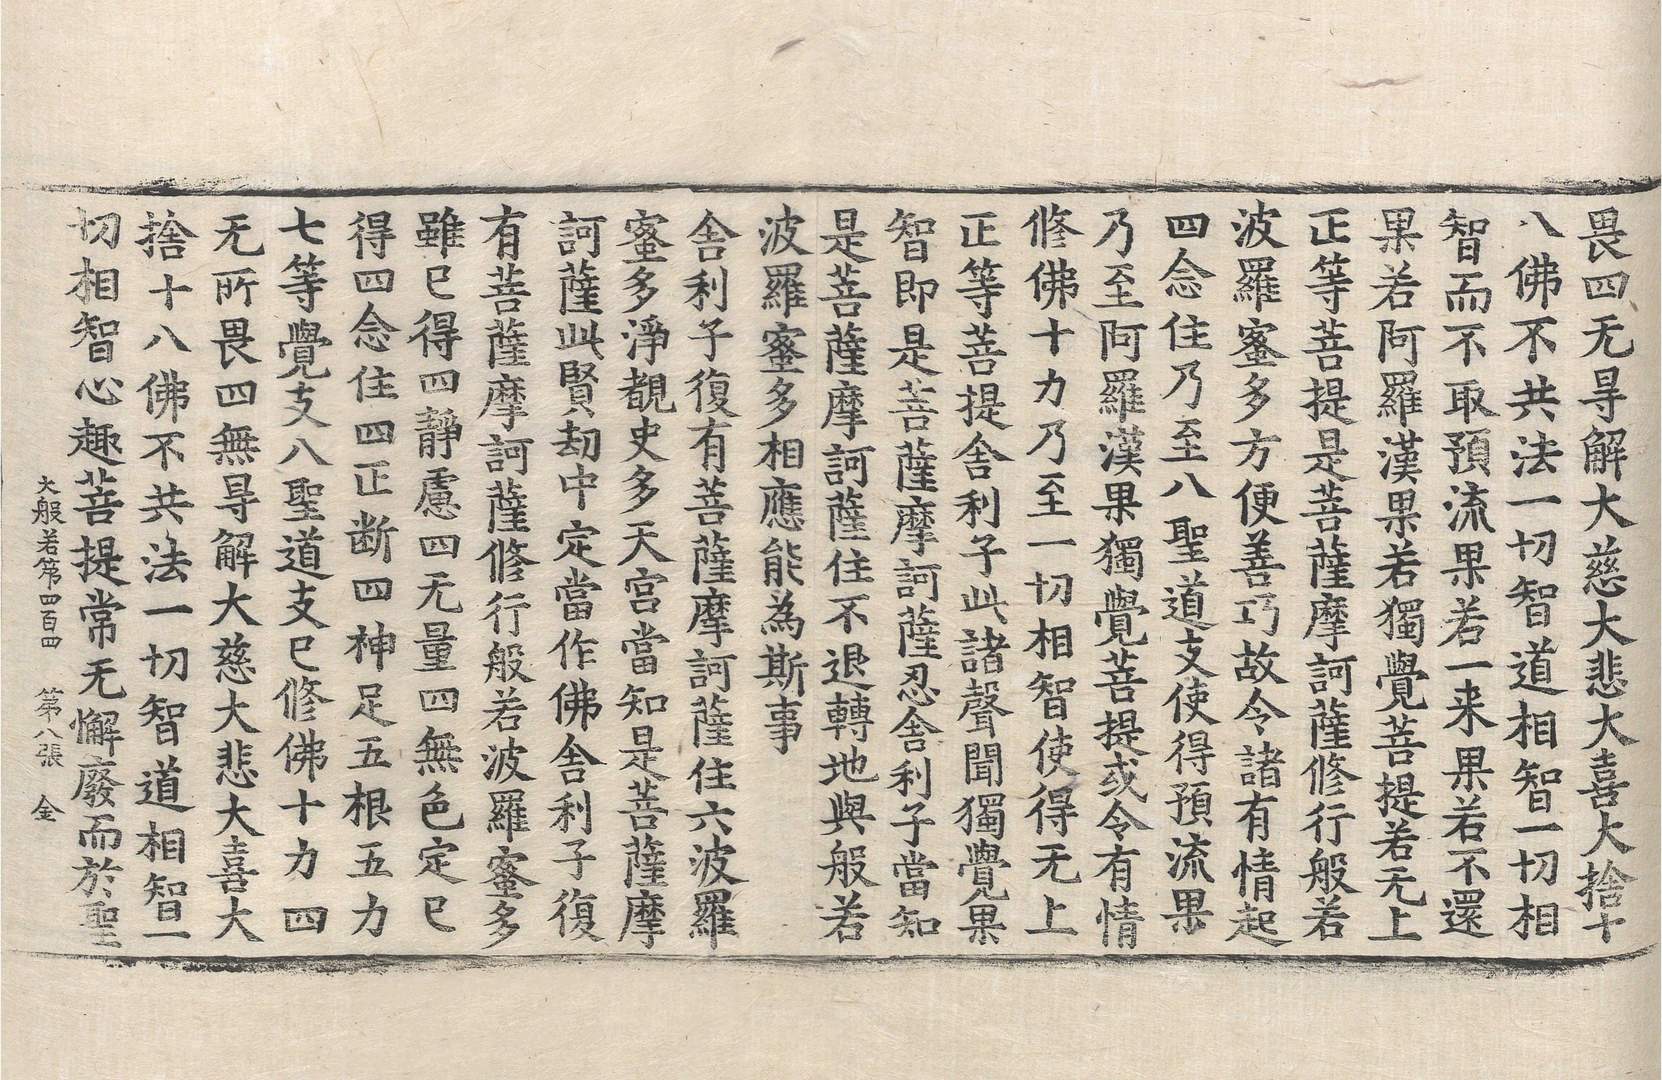 畏四无㝵解大慈大悲大喜大捨十
八佛不共法一切智道相智一切相
智而不取預流果若一来果若不還
果若阿羅漢果若獨覺菩提若无上
正等菩提是菩薩摩訶薩修行般若
波羅蜜多方便善巧故令諸有情起
四念住乃至八聖道支使得預流果
乃至阿羅漢果獨覺菩提或令有情
修佛十力乃至一切相智使得无上
正等菩提舍利子此諸聲聞獨覺果
智即是菩薩摩訶薩忍舍利子當知
是菩薩摩訶薩住不退轉地與般若
波羅蜜多相應能為斯事
舍利子復有菩薩摩訶薩住六波羅
蜜多淨覩史多天宮當知是菩薩摩
訶薩此賢劫中定當作佛舍利子復
有菩薩摩訶薩修行般若波羅蜜多
雖已得四靜慮四无量四無色定已
得四念住四正断四神足五根五力
七等覺支八聖道支已修佛十力四
无所畏四無㝵解大慈大悲大喜大
捨十八佛不共法一切智道相智一
切相智心趣菩提常无懈廢而於聖
大般若第四百四 第八張 金